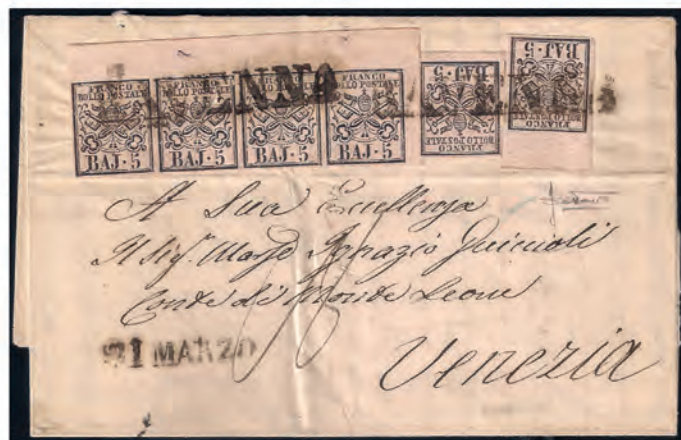 FRANCO BOLLO POSTALE BAJ·5
FRANCO BOLLO POSTALE BAJ·5
FRANCO BOLLO POSTALE BAJ·5
FRANCO BOLLO POSTALE BAJ·5
FRANCO BOLLO POSTALE BAJ·5
FRANCO BOLLO POSTALE BAJ·5
A Sua Eccellenza
Il Sig.r Marse Ignazio Guiccioli
Conte di Monte Leone
21 MARZO
Venezia